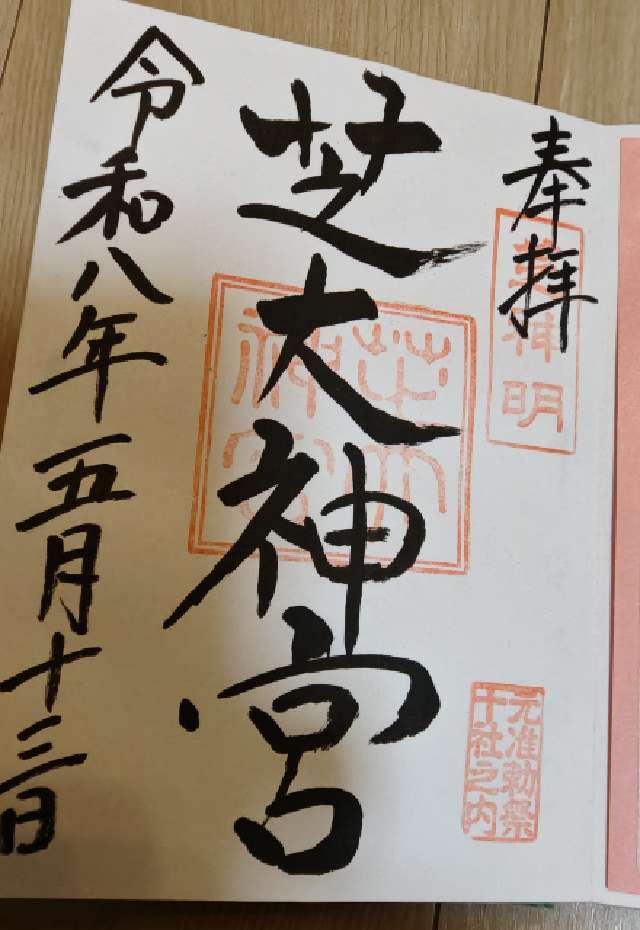 奉拝
芝神明
元准勅祭
十社之内
芝大神宮
芝大
神宮
令和八年五月十三日